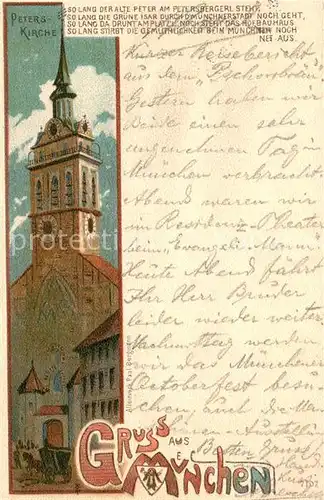 PETERS-
KIRCHE
SO LANG DER ALTE PETER AM PETERSBERGERL STEHT,
SO LANG DIE GRÜNE ISAR DURCH D'MÜNCHNERSTADT NOCH GEHT,
SO LANG DA DRUNT AM PLATZL NOCH STEHT DAS HOFBRÄUHAUS
SO LANG STIRBT DIE GEMÜTHLICHKEIT BEIM MÜNCHNER NOCH
NET AUS.
Kurzer Reisebericht
aus dem
Gestern haben wir
Beide einen sehr
angenehmen Tag in
München verbracht
Abend waren wir
im Residenz-Theater
beim „Evangeli-Mann.
Heute Abend fährt
Ihr Herr Bruder
leider wieder weiter
werden
wir das Münchener
Octoberfest besu-
chen, auch die
Ausstellung
Besten Gruss
GRUSS AUS
MÜNCHEN